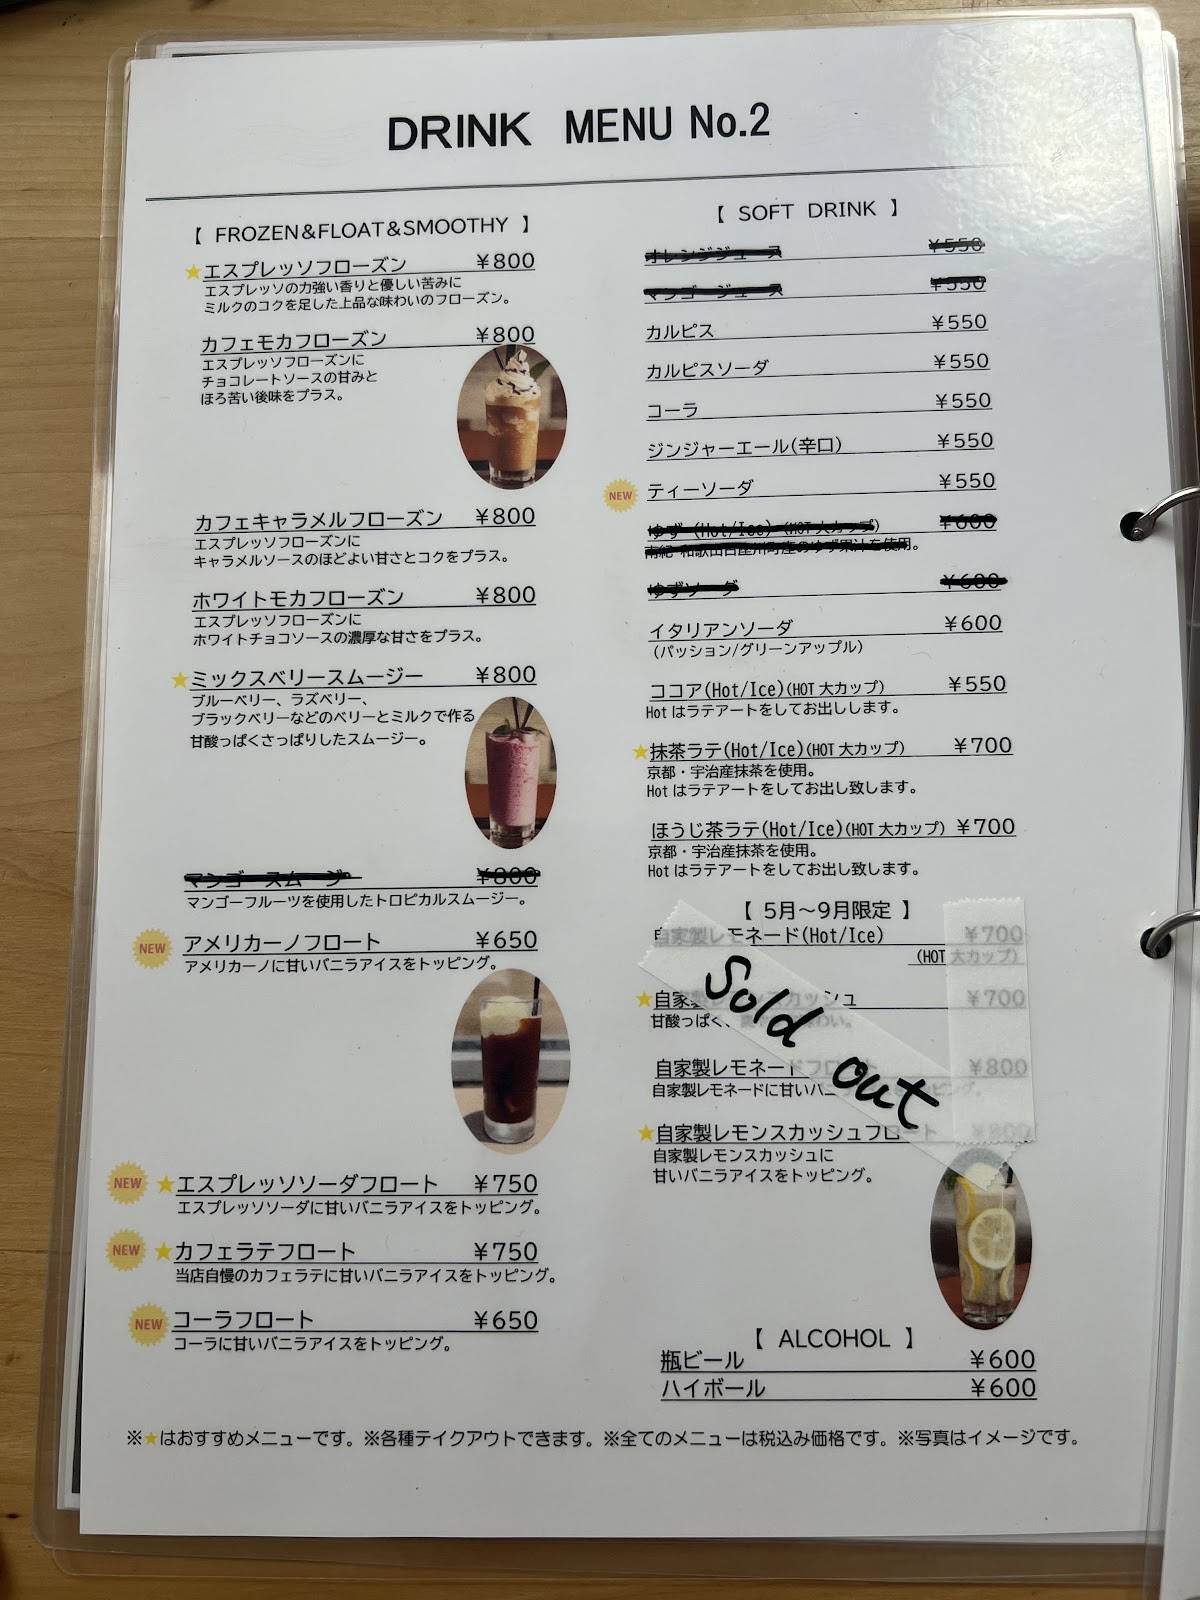 DRINK MENU No.2
【 FROZEN&FLOAT&SMOOTHY 】
★エスプレッソフローズン ¥800
エスプレッソの力強い香りと優しい苦みに
ミルクのコクを足した上品な味わいのフローズン。
カフェモカフローズン ¥800
エスプレッソフローズンに
チョコレートソースの甘みと
ほろ苦い後味をプラス。
カフェキャラメルフローズン ¥800
エスプレッソフローズンに
キャラメルソースのほどよい甘さとコクをプラス。
ホワイトモカフローズン ¥800
エスプレッソフローズンに
ホワイトチョコソースの濃厚な甘さをプラス。
★ミックスベリースムージー ¥800
ブルーベリー、ラズベリー、
ブラックベリーなどのベリーとミルクで作る
甘酸っぱくさっぱりしたスムージー。
マンゴースムージー ¥800
マンゴーフルーツを使用したトロピカルスムージー。
NEW アメリカーノフロート ¥650
アメリカーノに甘いバニラアイスをトッピング。
NEW ★エスプレッソソーダフロート ¥750
エスプレッソソーダに甘いバニラアイスをトッピング。
NEW ★カフェラテフロート ¥750
当店自慢のカフェラテに甘いバニラアイスをトッピング。
NEW コーラフロート ¥650
コーラに甘いバニラアイスをトッピング。
【 SOFT DRINK 】
オレンジジュース ¥550
マンゴージュース ¥550
カルピス ¥550
カルピスソーダ ¥550
コーラ ¥550
ジンジャーエール(辛口) ¥550
NEW ティーソーダ ¥550
ゆず (Hot/Ice) (HOT 大カップ) ¥600
南紀 和歌山古座川町産のゆず果汁を使用。
ゆずソーダ ¥600
イタリアンソーダ ¥600
(パッション/グリーンアップル)
ココア(Hot/Ice)(HOT 大カップ) ¥550
Hot はラテアートをしてお出しします。
★抹茶ラテ(Hot/Ice)(HOT 大カップ) ¥700
京都・宇治産抹茶を使用。
Hot はラテアートをしてお出し致します。
ほうじ茶ラテ(Hot/Ice)(HOT 大カップ) ¥700
京都・宇治産抹茶を使用。
Hot はラテアートをしてお出し致します。
【 5月～9月限定 】
自家製レモネード(Hot/Ice) ¥700
(HOT 大カップ)
★自家製レモンスカッシュ ¥700
甘酸っぱく、
Sold out
自家製レモネードフロート ¥800
自家製レモネードに甘いバニラアイスをトッピング。
★自家製レモンスカッシュフロート ¥800
自家製レモンスカッシュに
甘いバニラアイスをトッピング。
【 ALCOHOL 】
瓶ビール ¥600
ハイボール ¥600
※★はおすすめメニューです。※各種テイクアウトできます。※全てのメニューは税込み価格です。※写真はイメージです。